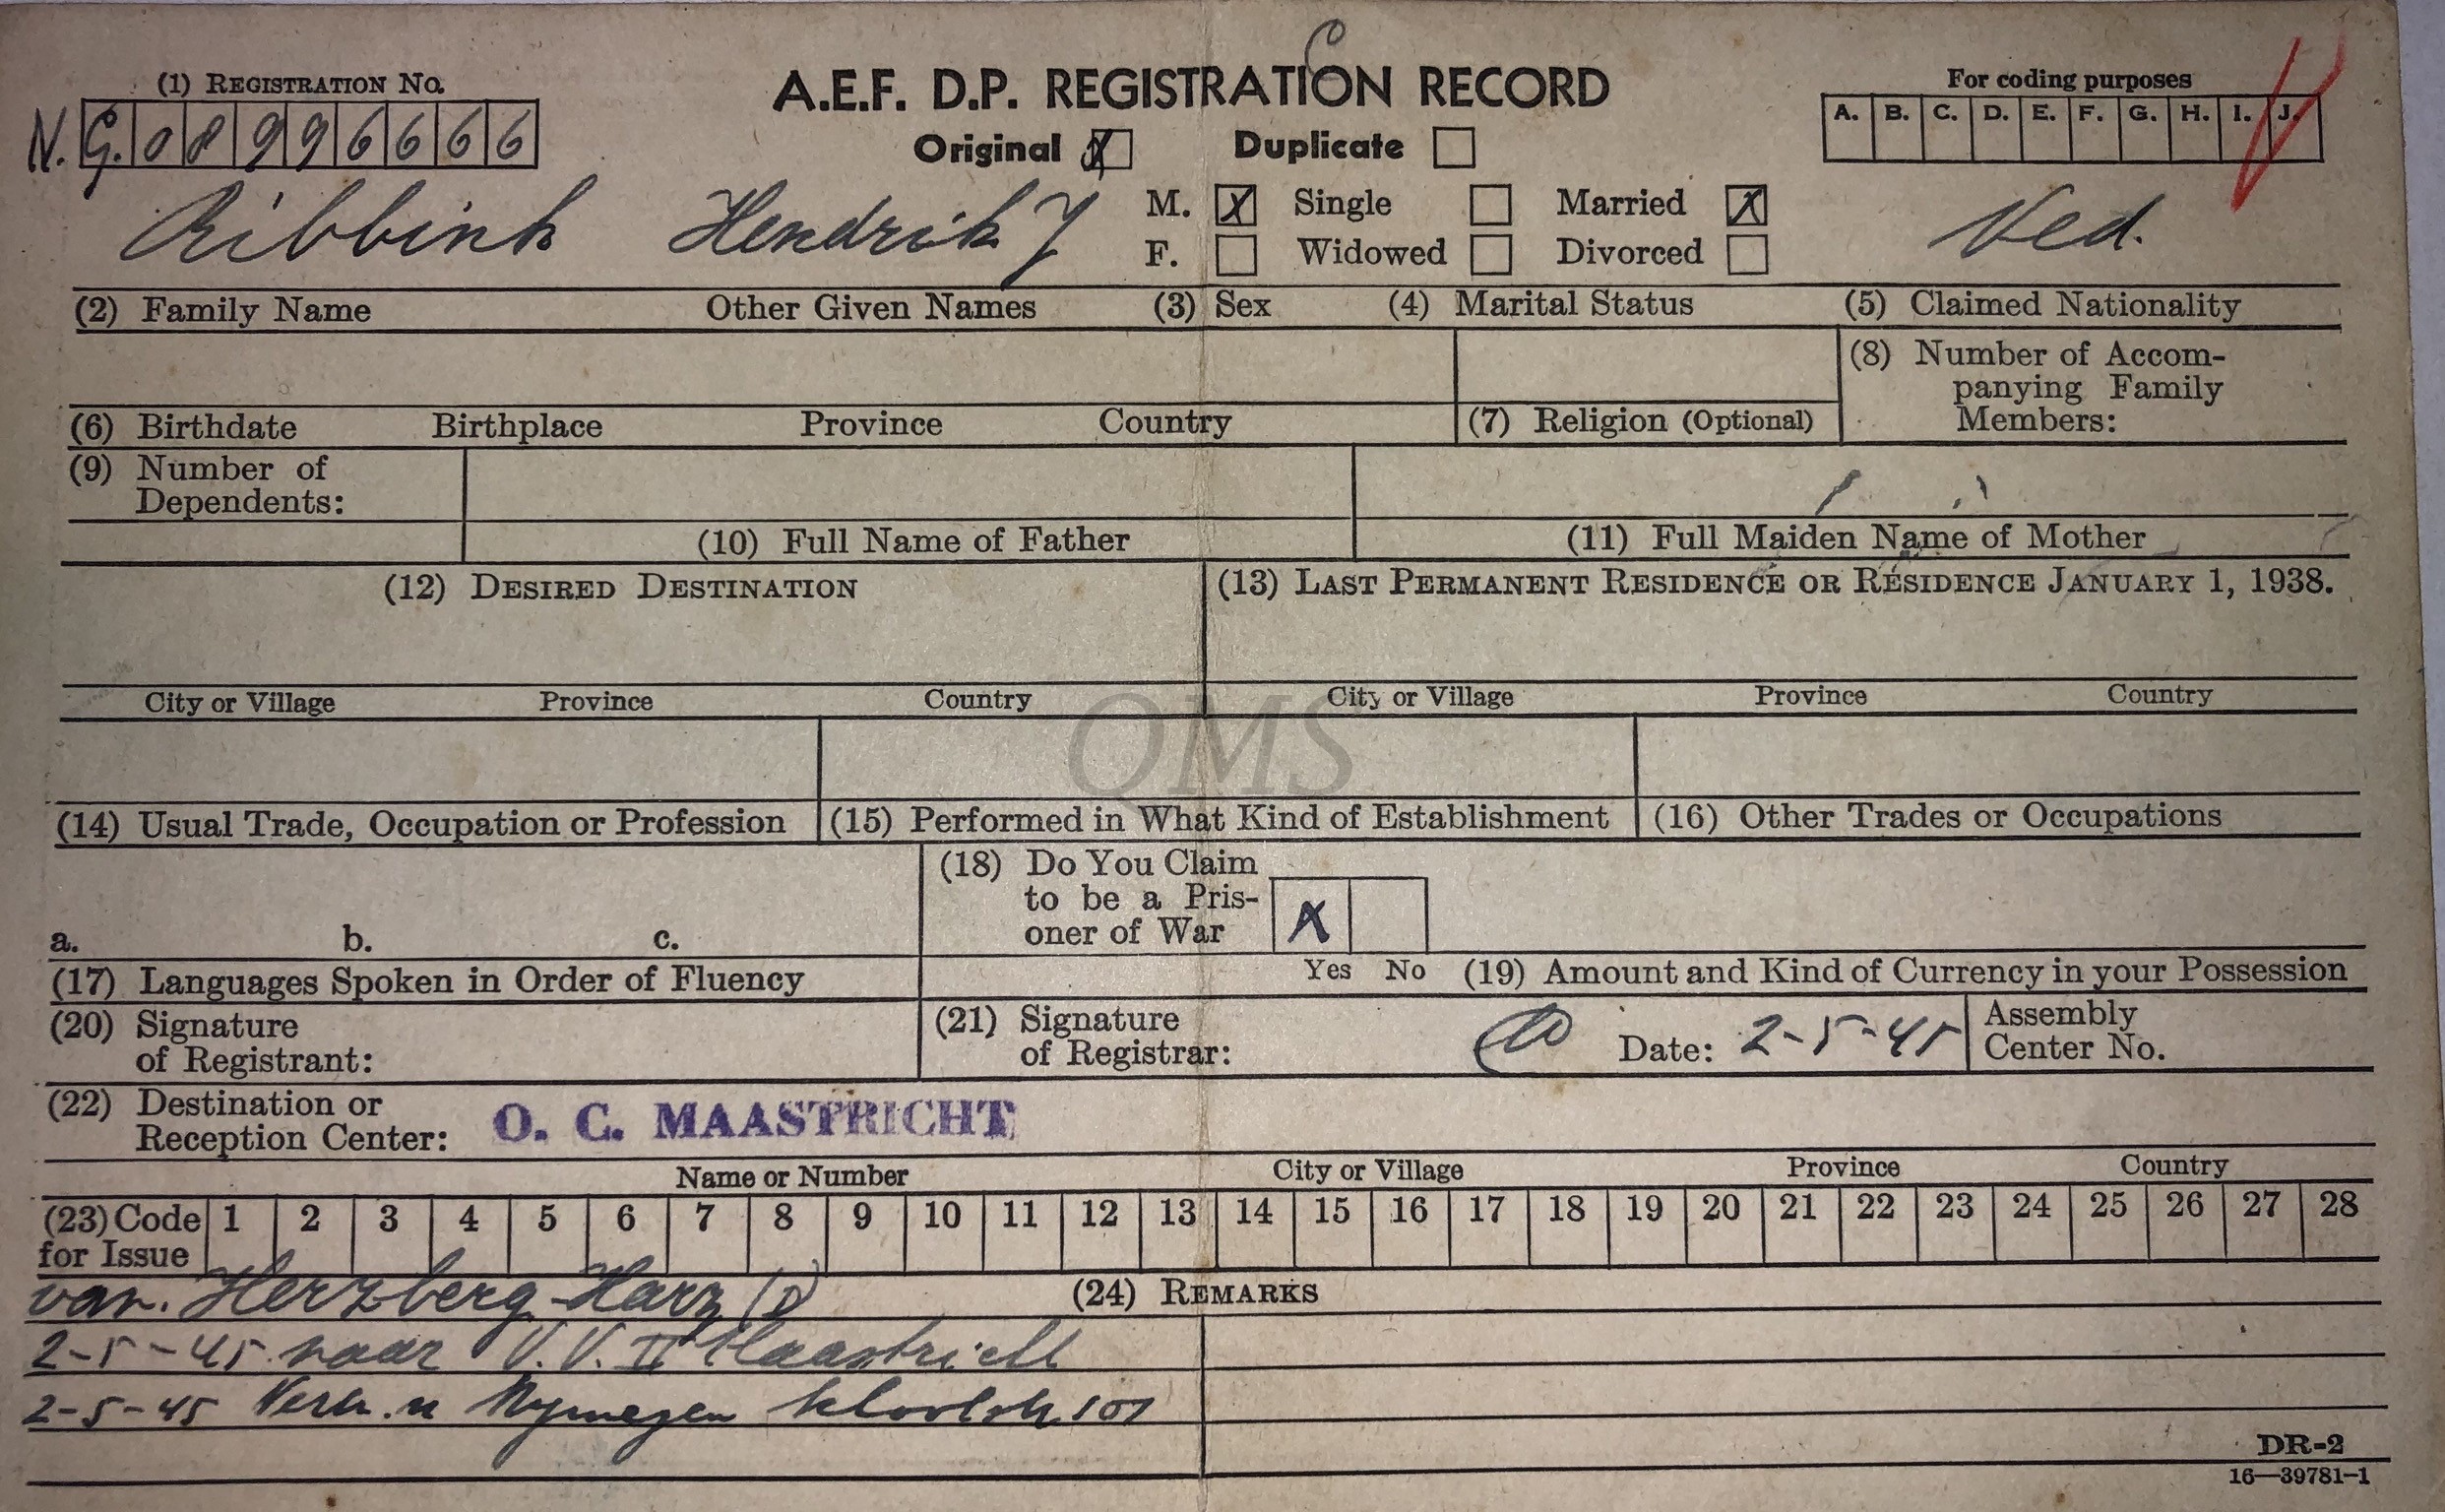 (1) REGISTRATION NO.
N. G. 0 8 9 9 6 6 6 6
A.E.F. D.P. REGISTRATION RECORD
Original X Duplicate
For coding purposes
A. B. C. D. E. F. G. H. I. J.
Ribbink Hendrik J
M. X Single Married X
F. Widowed Divorced
Ned.
(2) Family Name Other Given Names (3) Sex (4) Marital Status (5) Claimed Nationality
(6) Birthdate Birthplace Province Country
(7) Religion (Optional)
(8) Number of Accom-
panying Family
Members:
(9) Number of
Dependents:
(10) Full Name of Father
(11) Full Maiden Name of Mother
(12) DESIRED DESTINATION
(13) LAST PERMANENT RESIDENCE OR RESIDENCE JANUARY 1, 1938.
City or Village Province Country
City or Village Province Country
QMS
(14) Usual Trade, Occupation or Profession
(15) Performed in What Kind of Establishment
(16) Other Trades or Occupations
a. b. c.
(17) Languages Spoken in Order of Fluency
(18) Do You Claim
to be a Pris-
oner of War
X
Yes No
(19) Amount and Kind of Currency in your Possession
(20) Signature
of Registrant:
(21) Signature
of Registrar:
Date: 2-5-45
Assembly
Center No.
(22) Destination or
Reception Center:
O. C. MAASTRICHT
Name or Number City or Village Province Country
(23) Code
for Issue
1 2 3 4 5 6 7 8 9 10 11 12 13 14 15 16 17 18 19 20 21 22 23 24 25 26 27 28
(24) REMARKS
van. Herzberg-Harz (D)
2-5-45 naar V.V. II Maastricht
2-5-45 Nymegen
DR-2
16—39781-1